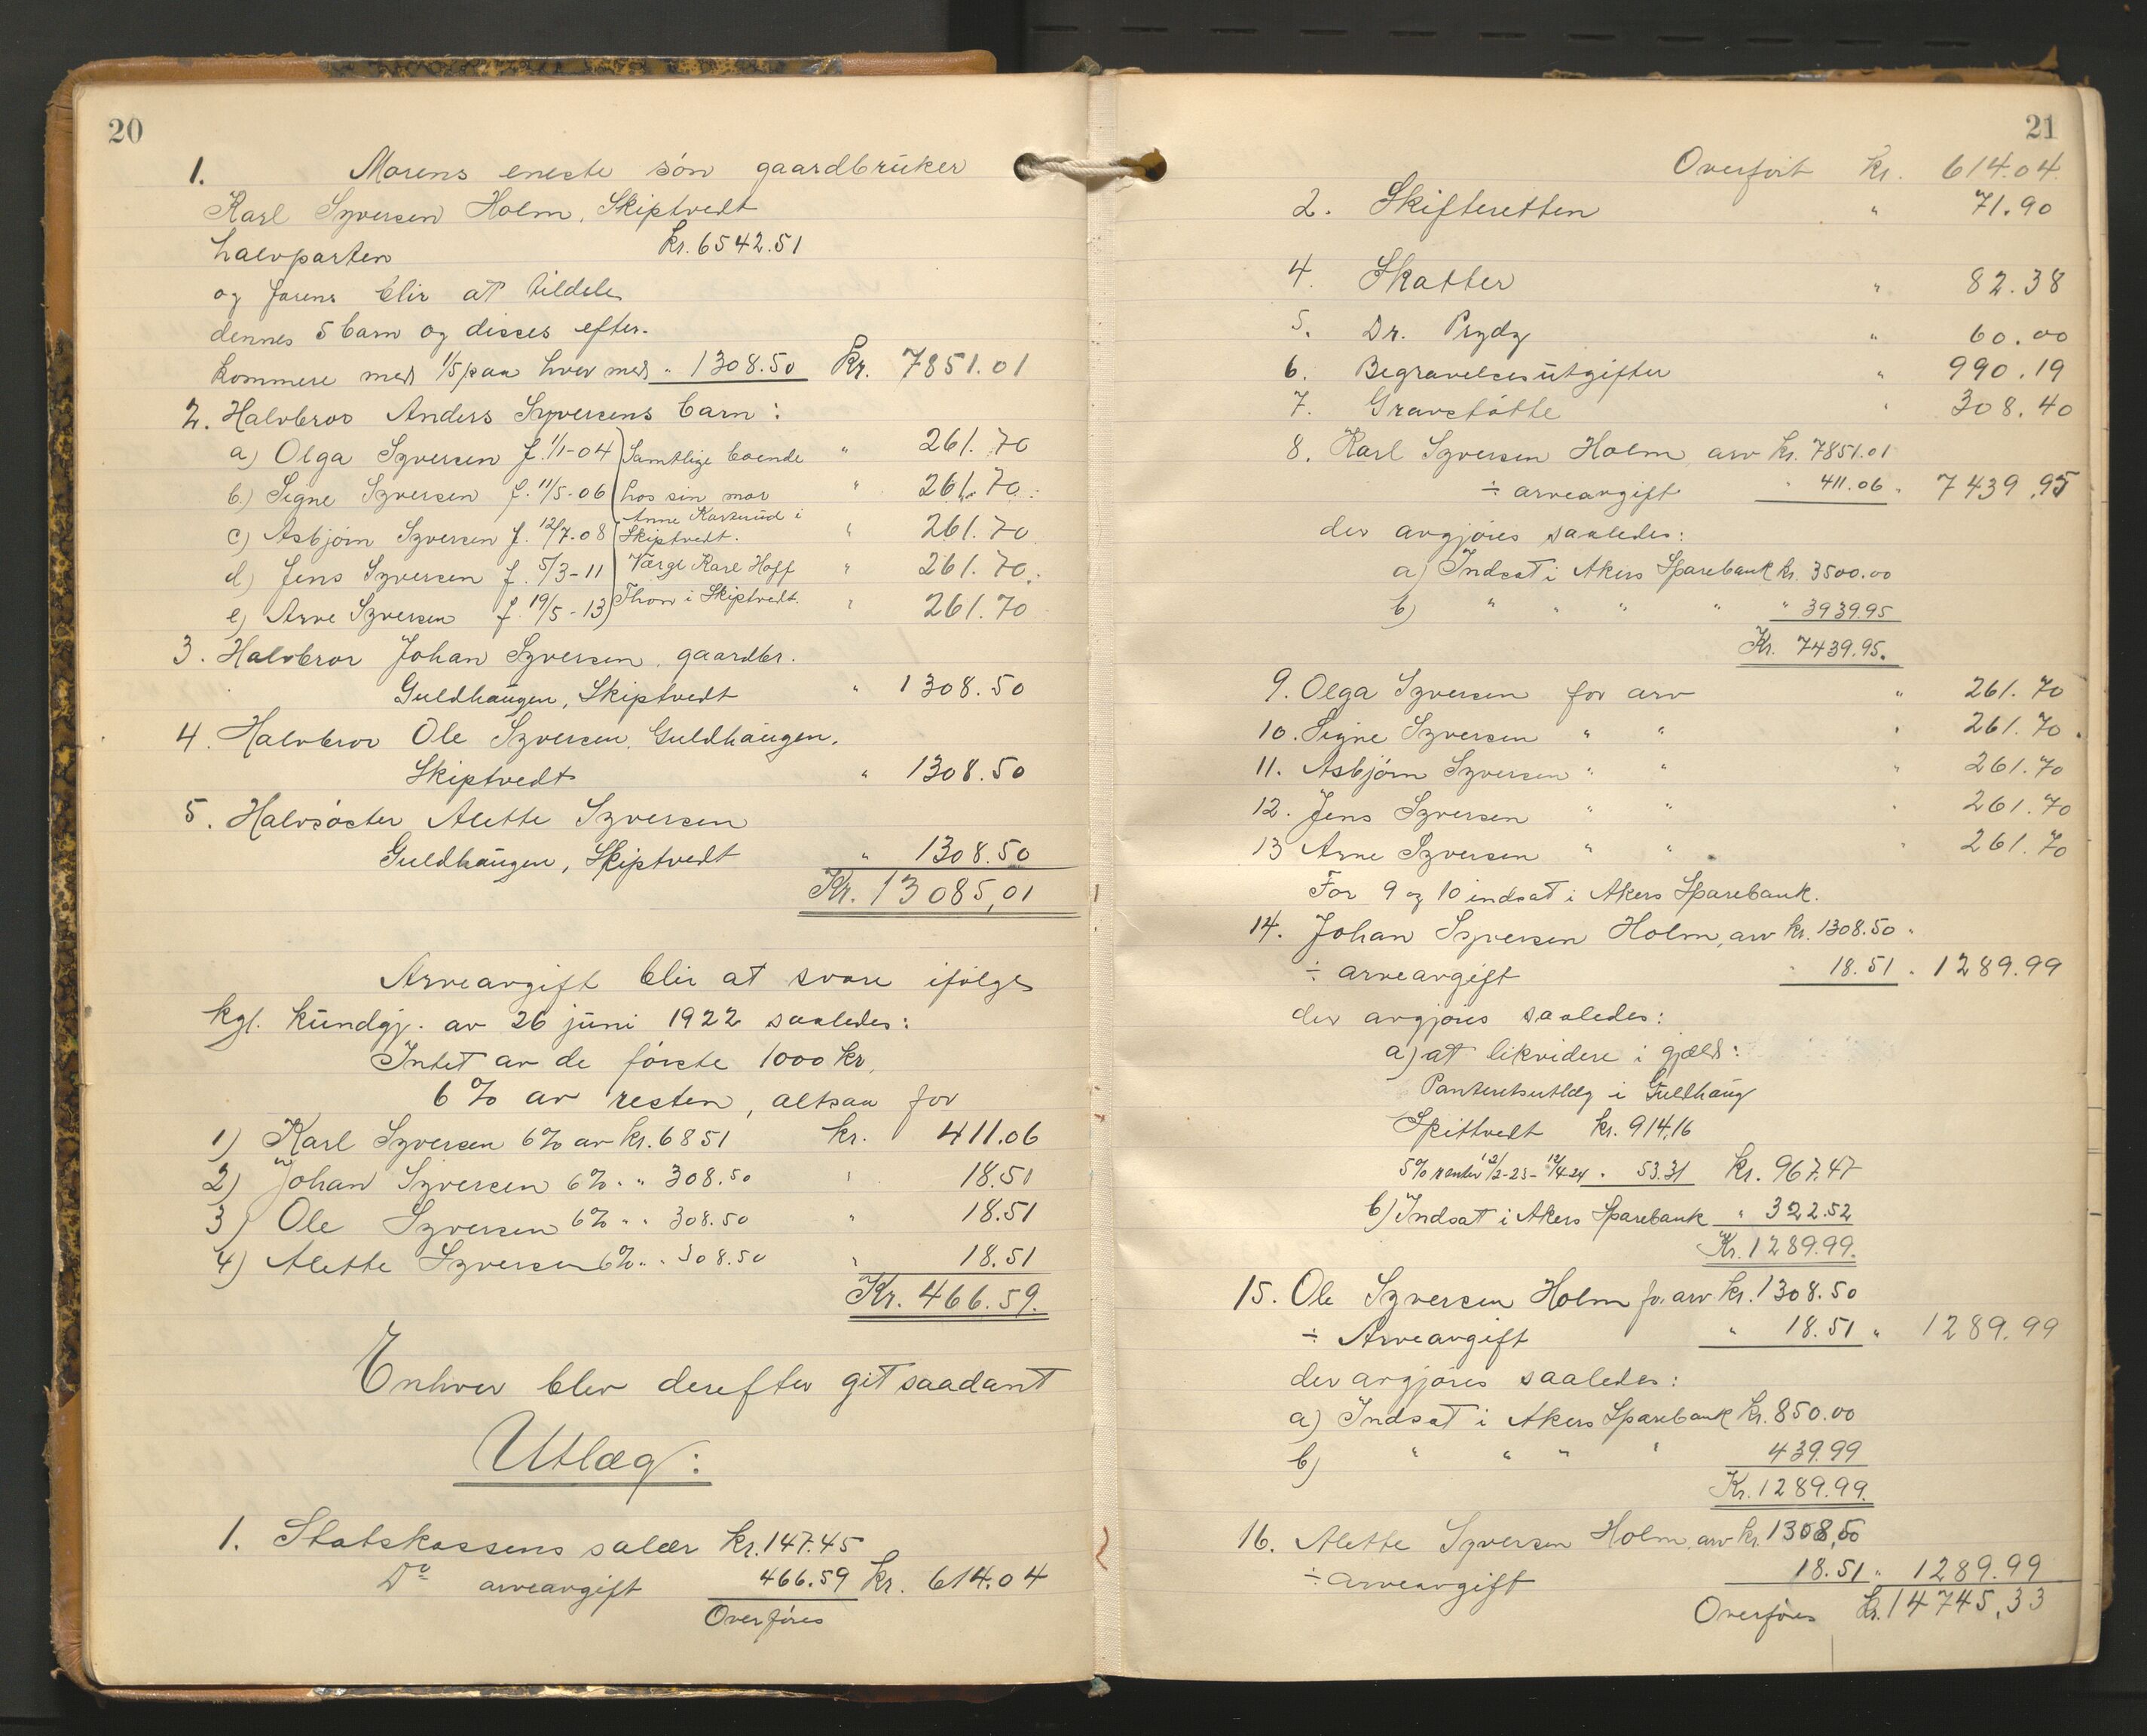 20
1. Morens eneste søn gaardbruker
Karl Syversen Holm, Skiptvedt
halvparten kr. 6542.51
og farens blir at tildele
dennes 5 barn og disses efter-
kommere med 1/5 paa hver med " 1308.50 Kr. 7851.01
2. Halvbror Anders Syversens barn:
a) Olga Syversen f. 1/1-04 Samtlige boende " 261.70
b.) Signe Syversen f. 11/5-06 hos sin mor " 261.70
c) Asbjørn Syversen f. 12/7-08 Anne Karterud i Skiptvedt. " 261.70
d) Jens Syversen f. 5/3-11 Værge Karl Hoff " 261.70
e) Arne Syversen f. 19/5-13 Thon i Skiptvedt. " 261.70
3. Halvbror Johan Syversen, gaardbr.
Guldhaugen, Skiptvedt " 1308.50
4. Halvbror Ole Syversen, Guldhaugen,
Skiptvedt " 1308.50
5. Halvsøster Alette Syversen
Guldhaugen, Skiptvedt " 1308.50
Kr. 13085,01
Arveavgift blir at svare ifølge
kgl. kundgj. av 26 juni 1922 saaledes:
Intet av de første 1000 kr,
6% av resten, altsaa for
1) Karl Syversen 6% av kr. 6851 kr. 411.06
2) Johan Syversen 6% " " 308.50 " 18.51
3) Ole Syversen 6% " " 308.50 " 18.51
4) Alette Syversen 6% " " 308.50 " 18.51
Kr. 466.59.
Enhver blev derefter git saadant
Utlæg:
1. Statskassens salær kr. 147.45
Do arveavgift 466.59 Kr. 614.04
Overføres
21
Overført kr. 614.04.
2. Skifteretten " 71.90
4. Skatter " 82.38
5. Dr. Prydz " 60.00
6. Begravelsesutgifter " 990.19
7. Gravstøtte " 308.40
8. Karl Syversen Holm, arv kr. 7851.01
÷ arveavgift " 411.06 " 7439.95
der avgjøres saaledes:
a) Indsat i Akers Sparebank kr. 3500.00
b) " " " " " 3939.95
Kr. 7439.95.
9. Olga Syversen for arv " 261.70
10. Signe Syversen " " " 261.70
11. Asbjørn Syversen " " " 261.70
12. Jens Syversen " " " 261.70
13 Arne Syversen " " " 261.70
For 9 og 10 indsat i Akers Sparebank.
14. Johan Syversen Holm, arv kr. 1308.50
÷ arveavgift " 18.51 " 1289.99
der avgjøres saaledes:
a) at likvidere i gjæld:
Panteutsutlæg i Guldhaug
Skittvedt kr. 914,16
5% renter 12/2-23 - 12/4-24 " 53.31 Kr. 967.47
b) Indsat i Akers Sparebank " 322.52
Kr. 1289.99.
15. Ole Syversen Holm fr. arv kr. 1308.50
÷ Arveavgift " 18.51 " 1289.99
der avgjøres saaledes:
a) Indsat i Akers Sparebank kr. 850.00
b) " " " " 439.99
Kr. 1289.99.
16. Alette Syversen Holm, arv kr. 1308,50
÷ arveavgift 18.51 " 1289.99
Overføres kr. 14745,33